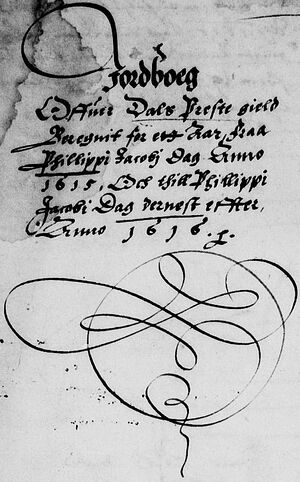 Jordboeg
Offuer Dals Preste gield
Beregnit for ett Aar, fraa
Phillippi Jacobj Dag Anno
1615, Och thill Phillippi
Jacobi Dag dernest effter,
Anno 1616.